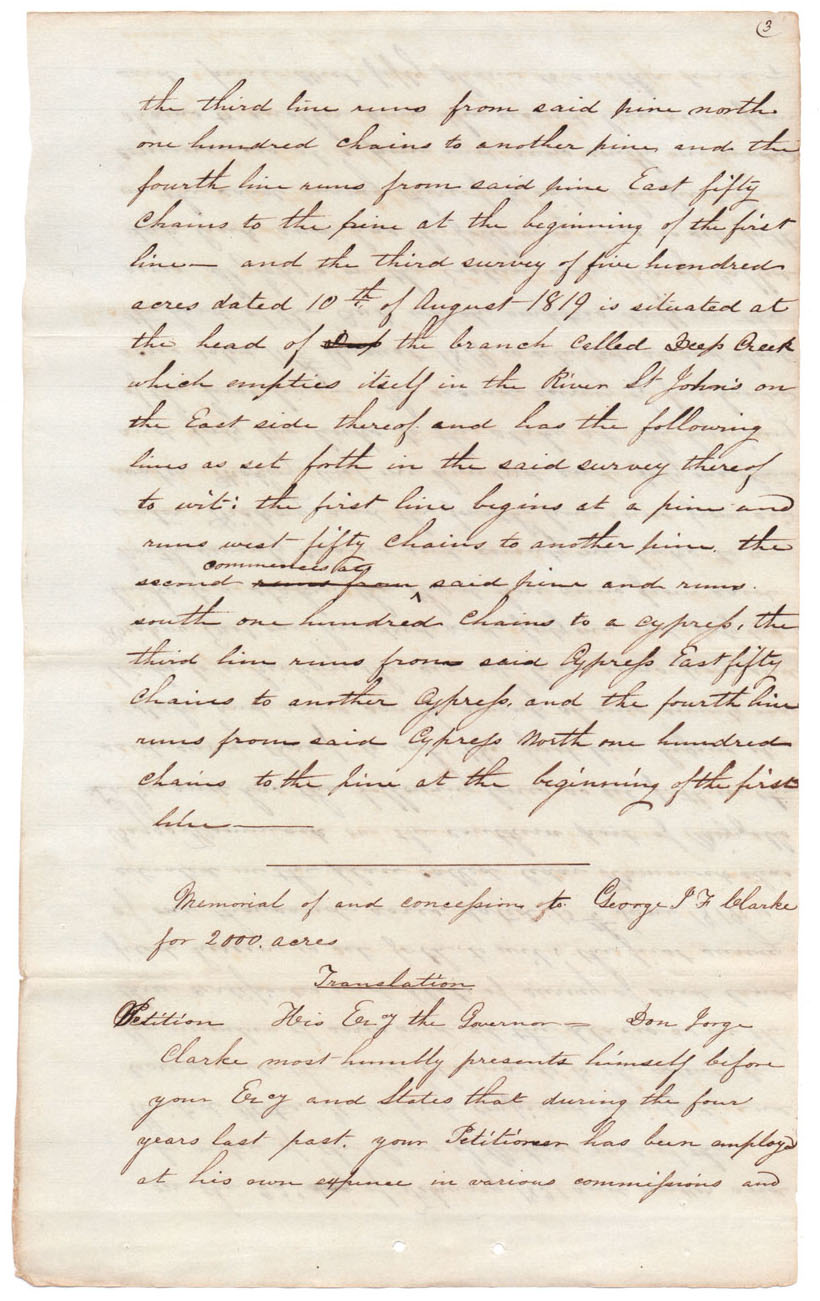 3
the third line runs from said pine north
one hundred chains to another pine and the
fourth line runs from said pine East fifty
Chains to the pine at the beginning of the first
line — and the third survey of five hundred
acres dated 10th of August 1819 is situated at
the head of Deep the branch called Deep Creek
which empties itself in the River St John's on
the East side thereof and has the following
lines as set forth in the said survey thereof
to wit: the first line begins at a pine and
runs west fifty Chains to another pine. the
commences at
second runs from said pine and runs
south one hundred Chains to a cypress, the
third line runs from said Cypress East fifty
Chains to another Cypress, and the fourth line
runs from said Cypress North one hundred
Chains to the pine at the beginning of the first
line —
Memorial of and concession to George J F Clarke
for 2000 acres
Translation
Petition His Excy the Governor = Don Jorge
Clarke most humbly presents himself before
your Excy and States that during the four
years last past. your Petitioner has been employd
at his own expence in various commissions and